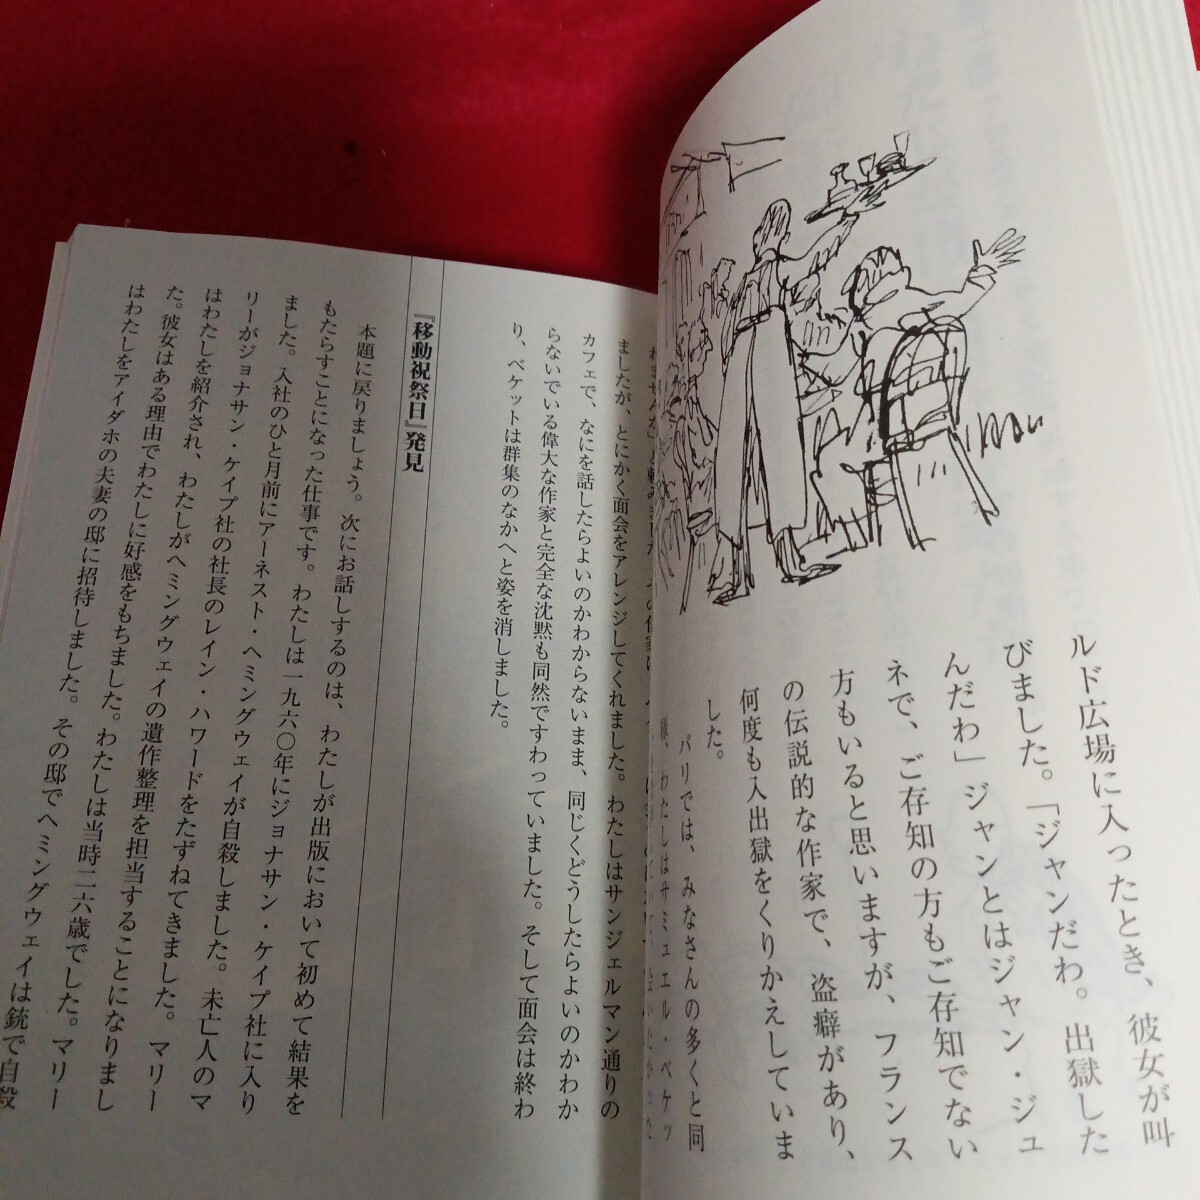 ルド広場に入ったとき、彼女が叫
びました。「ジャンだわ。出獄した
んだわ」ジャンとはジャン・ジュ
ネで、ご存知の方もご存知でない
方もいると思いますが、フランス
の伝説的な作家で、盗癖があり、
何度も入出獄をくりかえしていま
した。
パリでは、みなさんの多くと同
様、わたしはサミュエル・ベケッ
ましたが、とにかく面会をアレンジしてくれました。わたしはサンジェルマン通りの
カフェで、なにを話したらよいのかわからないまま、同じくどうしたらよいのかわか
らないでいる偉大な作家と完全な沈黙も同然ですわっていました。そして面会は終わ
り、ベケットは群集のなかへと姿を消しました。
『移動祝祭日』発見
本題に戻りましょう。次にお話しするのは、わたしが出版において初めて結果を
もたらすことになった仕事です。わたしは一九六〇年にジョナサン・ケイプ社に入り
ました。入社のひと月前にアーネスト・ヘミングウェイが自殺しました。未亡人のマ
リーがジョナサン・ケイプ社の社長のレイン・ハワードをたずねてきました。マリー
はわたしを紹介され、わたしがヘミングウェイの遺作整理を担当することになりまし
た。彼女はある理由でわたしに好感をもちました。わたしは当時二六歳でした。マリー
はわたしをアイダホの夫妻の邸に招待しました。その邸でヘミングウェイは銃で自殺